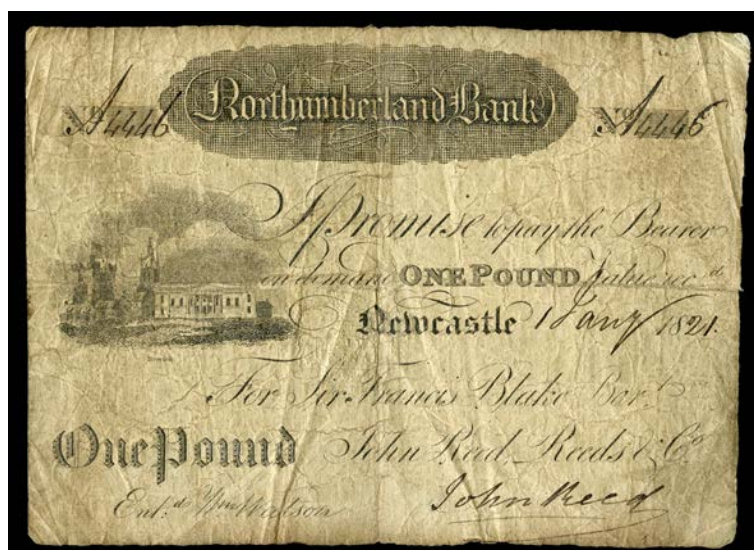 Northumberland Bank
No A4446 No A4446
I Promise to pay the Bearer
on demand ONE POUND value recd
Newcastle 1 Jany 1821.
For Sir Francis Blake Bart
One Pound John Reed, Reeds & Co
Entd Wm Watson John Reed